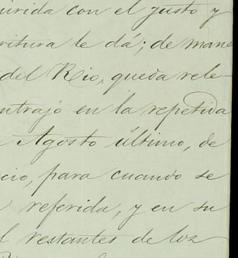 uirida con el justo y
critura le dá; de mane
del Rio, queda rele
ontrajo en la repetida
Agosto último, de
cio, para cuando se
referida, y en su
l restantes de los